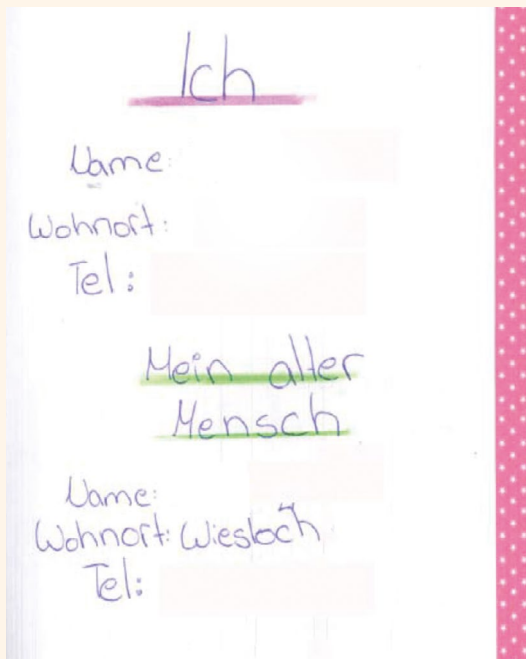 Ich
Name:
Wohnort:
Tel:
Mein alter
Mensch
Name:
Wohnort: Wiesloch
Tel: